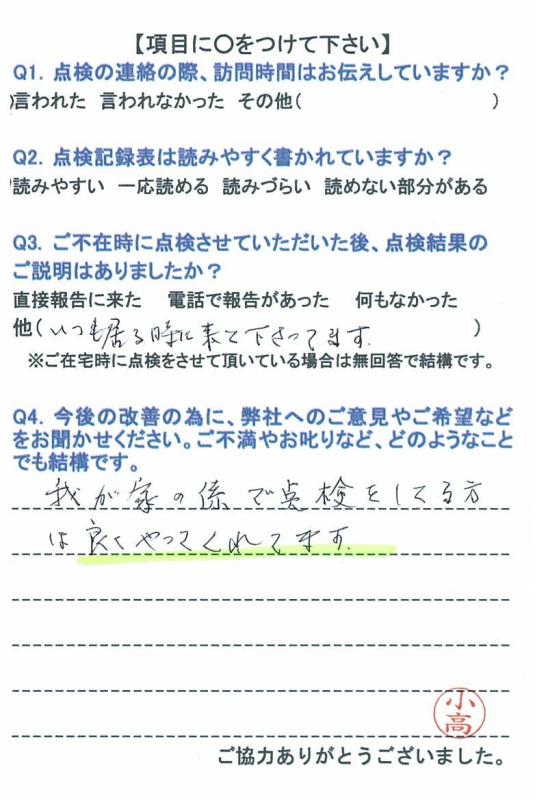 【項目に〇をつけて下さい】
Q1. 点検の連絡の際、訪問時間はお伝えしていますか？
言われた 言われなかった その他( )
Q2. 点検記録表は読みやすく書かれていますか？
読みやすい 一応読める 読みづらい 読めない部分がある
Q3. ご不在時に点検させていただいた後、点検結果の
ご説明はありましたか？
直接報告に来た 電話で報告があった 何もなかった
他(いつも居る時に来て下さってます。)
※ご在宅時に点検をさせて頂いている場合は無回答で結構です。
Q4. 今後の改善の為に、弊社へのご意見やご希望など
をお聞かせください。ご不満やお叱りなど、どのようなこと
でも結構です。
我が家の係で点検をしてる方
は良くやってくれてます。
小高
ご協力ありがとうございました。